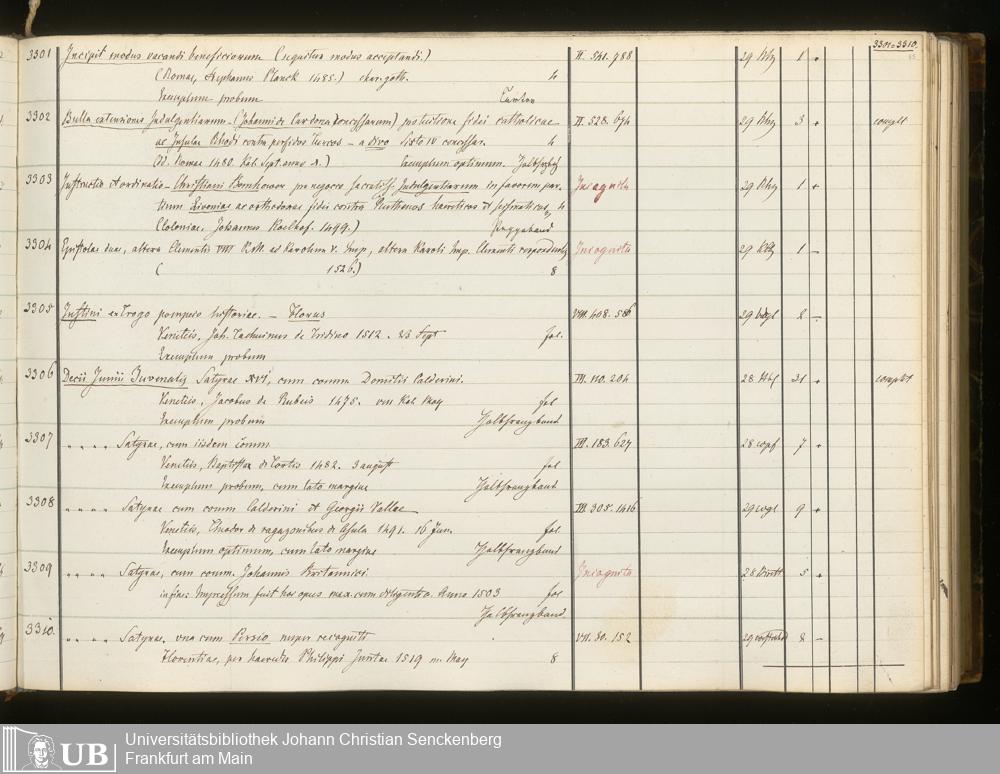 3301=3310.
3301 Incipit modus vacandi beneficiorum (sequitur modus acceptandi.) II. 541. 988 29 1 +
(Romae, Stephanus Planck 1485.) char. goth. 4
Exemplum probum Carton
3302 Bulla extensionis Indulgentiarum - (Johanni de Cardona concessarum) pro tuitione fidei catholicae II. 528. 674 29 3 + complt
ac Insulae Rhodi contra perfidos Turcos - a divo Sixto IV concessar. 4
(Id. Romae 1480. Kal. Sept. anno 1.) Exemplum optimum. Halbfrzbd
3303 Instructio et ordinatio - Christiani Bomhower pro negocio sacratiss. Indulgentiarum in favorem par- Incognita 29 1 +
tium Livoniae ac orthodoxae fidei contra Ruthenos haereticos et scismaticos 4
(Coloniae, Johannes Koelhof. 1499.) Pappeband
3304 Epistolae duae, altera Clementis VII P.M. ad Karolum V. Imp., altera Karoli Imp. Clementi respondentis Incognita 29 1 -
( 1526.) 8
3305 Justini ex Trogo pompeio historiae. - Florus VIII. 408. 586 29 2 -
Venetiis, Joh. Tacuinus de Tridino 1512. 23 Sept fol.
Exemplum probum
3306 Decii Junii Juvenalis Satyrae XVI, cum comm Domitii Calderini. III. 110. 204 28 21 + complt
Venetiis, Jacobus de Rubeis 1475. VIII Kal. May fol
Exemplum probum Halbfranzband
3307 " " " " Satyrae, cum iisdem comm III. 183. 627 28 7 +
Venetiis, Baptista de Tortis 1482. 3 august fol
Exemplum probum, cum lato margine Halbfranzband
3308 " " " " Satyrae cum comm Calderini et Georgii Vallae III. 305. 1416 29 9 +
Venetiis, Theodor de ragazonibus de Asula 1491. 16 Jun. fol
Exemplum optimum, cum lato margine Halbfranzband
3309 " " " " Satyrae, cum comm. Johannis Britannici Incognita 28 5 +
in fine: Impressum fuit hoc opus max. cum diligentia. Anno 1503 fol
Halbfranzband.
3310. " " " " Satyrae, una cum Persio nuper recogniti VII. 30. 152 29 8 -
Florentiae, per haeredes Philippi Juntae 1519 m. May 8
UB Universitätsbibliothek Johann Christian Senckenberg
Frankfurt am Main